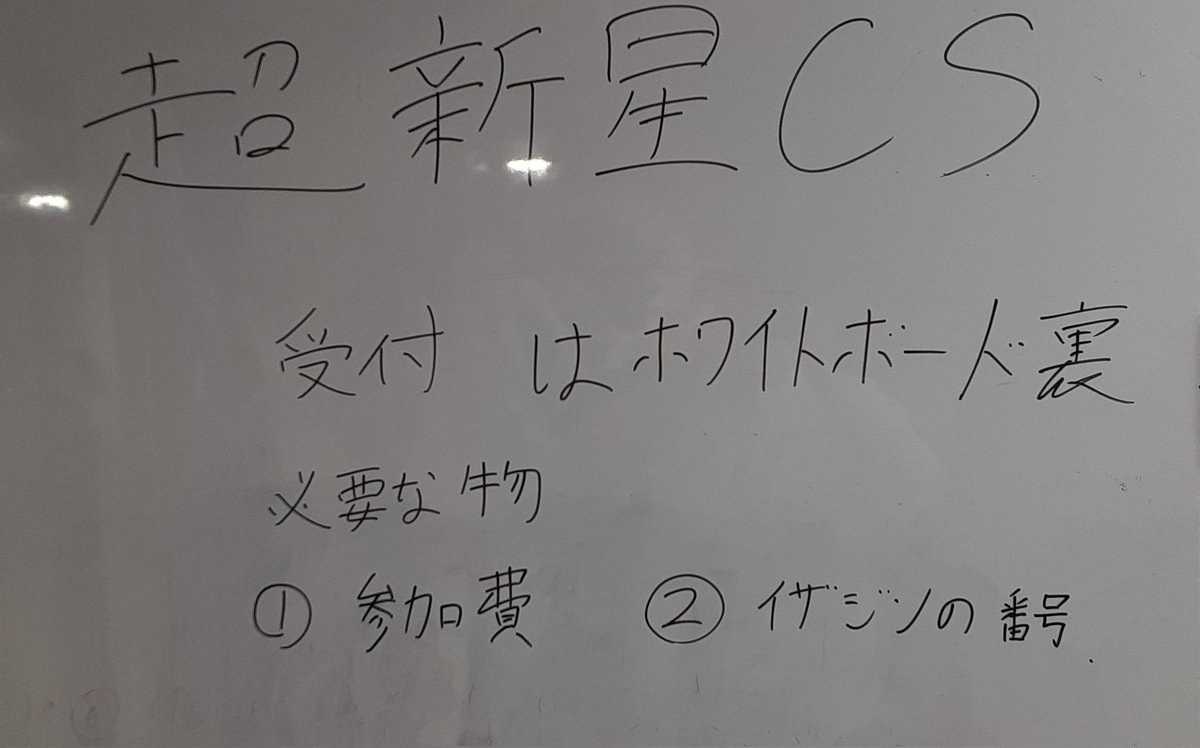 超新星CS
受付はホワイトボード裏
必要な物
① 参加費 ② イザジンの番号